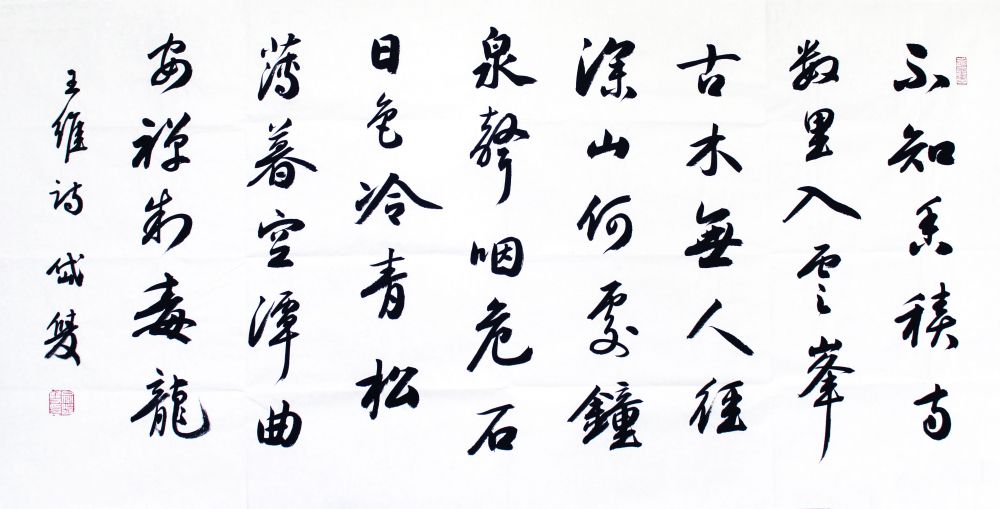 不知香積寺
数里入雲峯
古木無人徑
深山何處鐘
泉聲咽危石
日色冷青松
薄暮空潭曲
安禅制毒龍
王維詩 岱雙